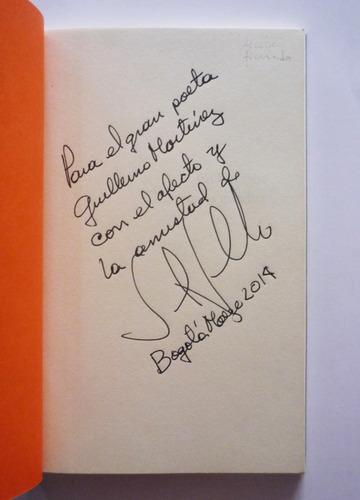 Para el gran poeta
Guillermo Martínez
con el afecto y
la amistad de
Bogotá, Marzo 2014